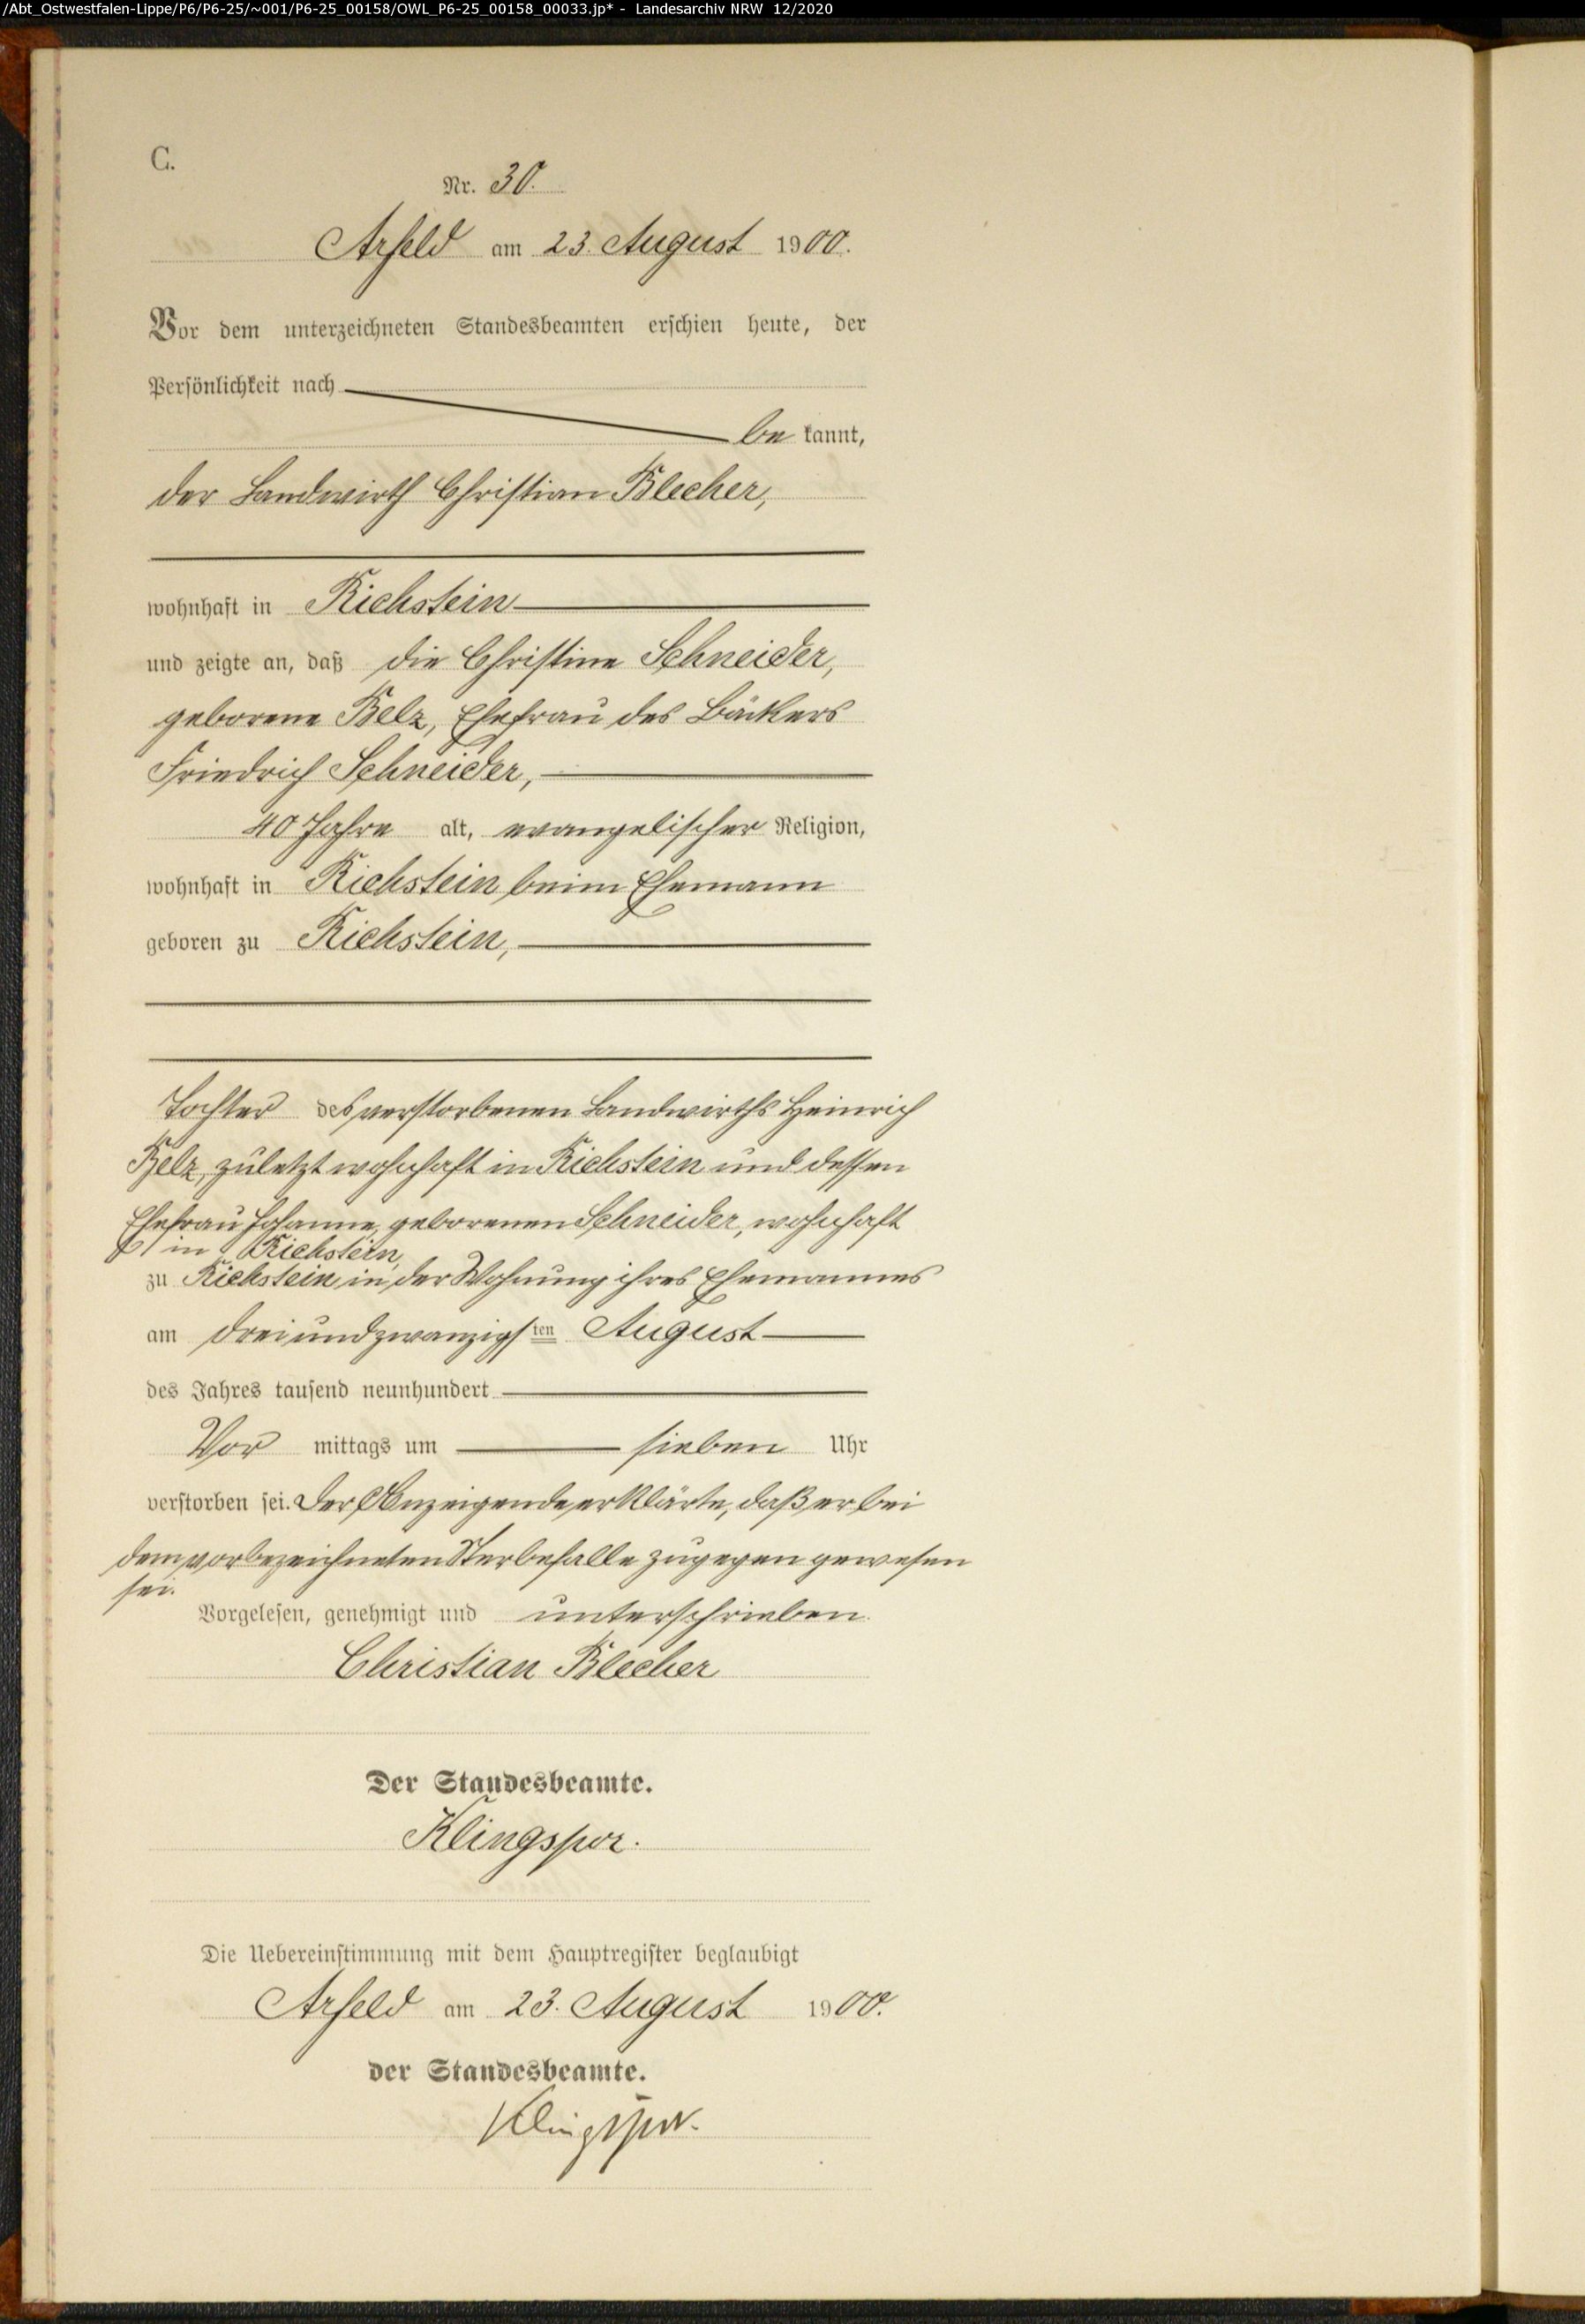 /Abt_Ostwestfalen-Lippe/P6/P6-25/~001/P6-25_00158/OWL_P6-25_00158_00033.jp* - Landesarchiv NRW 12/2020
C.
Nr. 30.
Arfeld am 23. August 1900.
Vor dem unterzeichneten Standesbeamten erschien heute, der
Persönlichkeit nach
be kannt,
der Landwirth Christian Blecher,
wohnhaft in Richstein
und zeigte an, daß die Christine Schneider,
geborene Belz, Ehefrau des Bäckers
Friedrich Schneider,
40 Jahre alt, evangelischer Religion,
wohnhaft in Richstein beim Ehemann
geboren zu Richstein,
Tochter des verstorbenen Landwirths Heinrich
Belz, zuletzt wohnhaft in Richstein und dessen
Ehefrau Johanne, geborenen Schneider, wohnhaft
in Richstein,
zu Richstein in der Wohnung ihres Ehemannes
am dreiundzwanzigsten August
des Jahres tausend neunhundert
Vor mittags um sieben Uhr
verstorben sei. Der Anzeigende erklärte, daß er bei
dem vorbezeichneten Sterbefalle zugegen gewesen
sei.
Vorgelesen, genehmigt und unterschrieben.
Christian Blecher
Der Standesbeamte.
Klingspor.
Die Uebereinstimmung mit dem Hauptregister beglaubigt
Arfeld am 23. August 1900.
der Standesbeamte.
Klingspor.